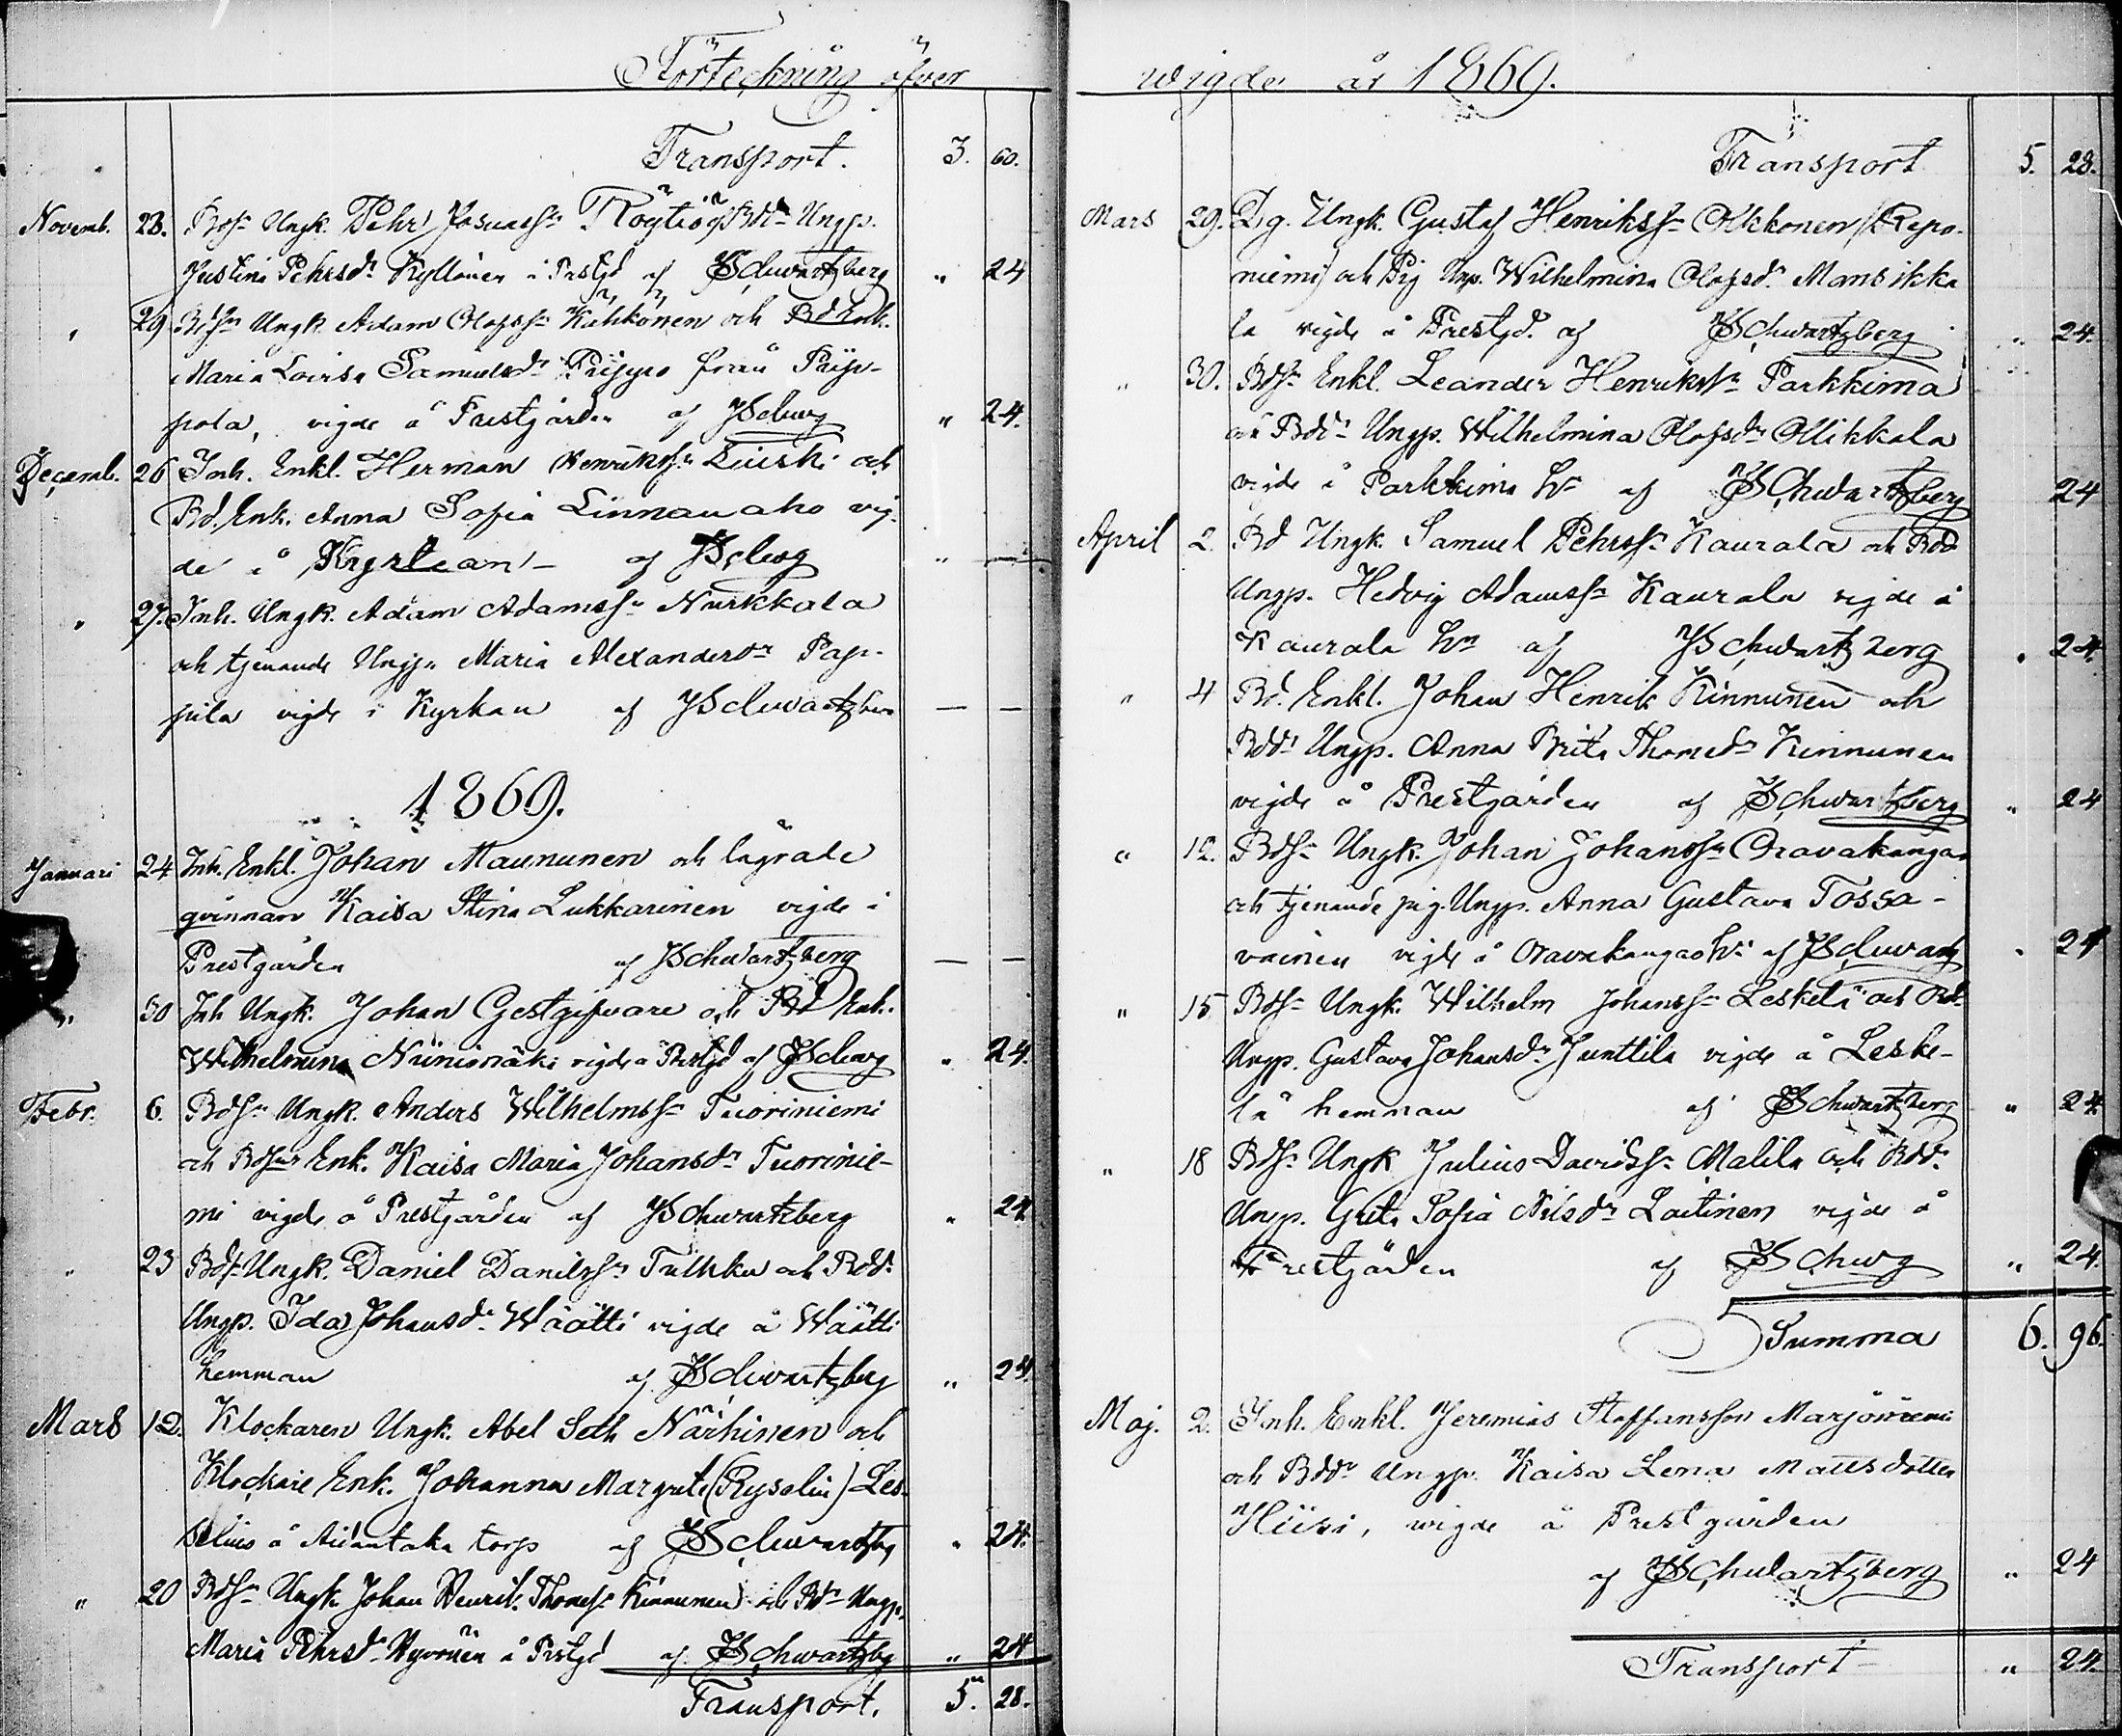 Förteckning öfver
Transport. 3. 60.
Novemb. 23. Bdsn Ungk. Pehr Josuassn Röytiö o Bddr Ungp.
Justina Pehrsdr Kyllönen å Prstgd af JSchwartzberg " 24
" 29 Bdsn Ungk. Adam Olofssn Kahkonen och Bd Enk.
Maria Lovisa Samuelsdr Piippo från Piip-
pola, vigde å Prestgården af JSchwg " 24.
Decemb. 26 Inh. Enkl. Herman Henrikssn Liuski och
Bd. Enk. Anna Sofia Linnanaho vig-
de i Kyrkan - af JSchwg " —
" 27. Inh. Ungk. Adam Adamssn Nurkkala
och tjenande Ungp. Maria Alexandersdr Pap-
pila vigde i Kyrkan af JSchwartzberg — —
1869.
Januari 24 Inh. Enkl. Johan Maununen och lägrade
qvinnan Kaisa Stina Lukkarinen vigde i
Prestgården af JSchwartzberg — —
" 30 Inh Ungk. Johan Gestgifvare och Bd Enk.
Wilhelmina Niinimäki vigde å Prstgd af JSchwg " 24.
Febr. 6. Bdsn Ungk. Anders Wilhelmssn Tuoriniemi
och Bdsons Enk. Kaisa Maria Johansdr Tuorinie-
mi vigde å Prestgården af JSchwartzberg " 24
" 23 Bdsn Ungk. Daniel Danielssn Tulkku och Bddr
Ungp. Ida Johansdr Wäätti vigde å Wäätti
hemman af JSchwartzberg " 24.
Mars 12. Klockaren Ungk. Abel Seth Närhinen och
Klockare Enk. Johanna Margreta (Ryselin) Les-
selius å torp af JSchwartzbg " 24.
" 20 Bdsn Ungk Johan Henrik Thomessn Kinnunen och Bdr Ungp.
Maria Pehrsdr Hyvönen å Prstgd af JSchwartzbg " 24
Transport. 5. 28.
wigde år 1869.
Transport 5. 28.
Mars 29. Dg. Ungk. Gustaf Henrikssn Olkkonen (Repo-
niemi) och Pig Unp. Wilhelmina Olofsdr Mansikka
la vigde å Prestgd. af JSchwartzberg " 24.
" 30. Bdsn Enkl. Leander Henrikssn Parkkima
och Bddr Ungp. Wilhelmina Olofsdr Ollikkala
vigde å Parkkima hn af JSchwartzberg 24
April 2. Bd Ungk. Samuel Pehrssn Kaurala och Bdd
Ungp. Hedvig Adamssn Kaurala vigde å
Kaurala hn af JSchwartzberg " 24.
" 4 Bd. Enkl. Johan Henrik Kinnunen och
Bddr Ungp. Anna Brita Thomedr Kinnunen
vigde å Prestgården af JSchwartzberg " 24
" 12. Bdsn Ungk. Johan Johanssn Oravakangas
och tjenande pig. Ungp. Anna Gustava Tossa-
vainen vigde å Oravakangas hn af JSchwartz " 24
" 15 Bdsn Ungk. Wilhelm Johanssn Leskelä och Bdr
Ungp. Gustava Johansdr Junttila vigde å Leske-
lä hemman af JSchwartzberg " 24.
" 18 Bdsn Ungk Julius Davidssn Malila och Bddr
Ungp. Greta Sofia Nilsdr Laitinen vigde å
Prestgården af JSchwg " 24.
Summa 6. 96.
Maj. 2. Inh. Enkl. Jeremias Staffansson Marjoniemi
och Bddr Ungp. Kaisa Lena Mattsdotter
Hiisi, wigde å Prestgården
af JSchwartzberg " 24
Transport " 24.